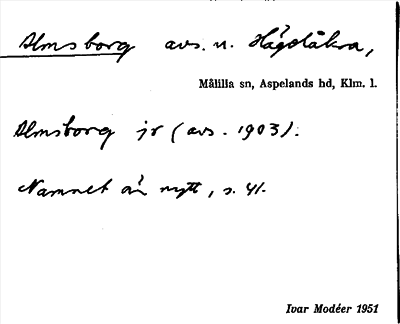 Almsborg avs. u. Högelåkra,
Målilla sn, Aspelands hd, Klm. l.
Almsborg jr (avs. 1903).
Namnet är nytt, s. 41.
Ivar Modéer 1951